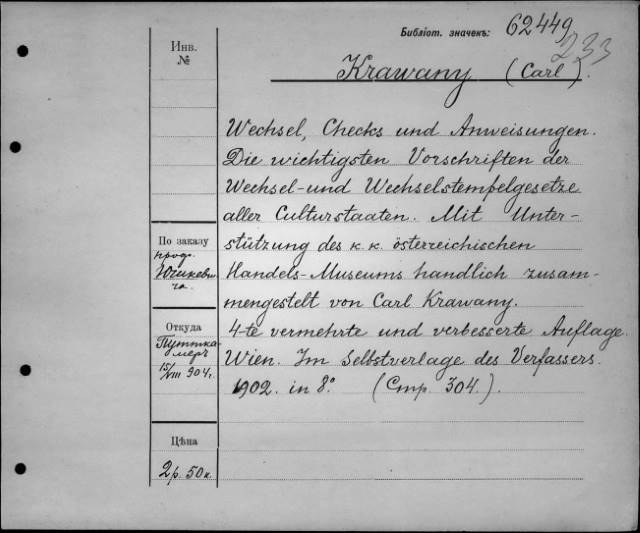 Библіот. значекъ: 62449
233
Инв.
№
Krawany (Carl).
Wechsel, Checks und Anweisungen.
Die wichtigsten Vorschriften der
Wechsel- und Wechselstempelgesetze
aller Culturstaaten. Mit Unter-
stützung des k. k. österreichischen
Handels-Museums handlich zusam-
mengestelt von Carl Krawany.
4-te vermehrte und verbesserte Auflage.
Wien. Im Selbstverlage des Verfassers.
1902. in 8º. (Стр. 304.).
По заказу
проф.
Откуда
Путтка-
меръ
15/VIII 904 г.
Цѣна
2 р. 50 к.